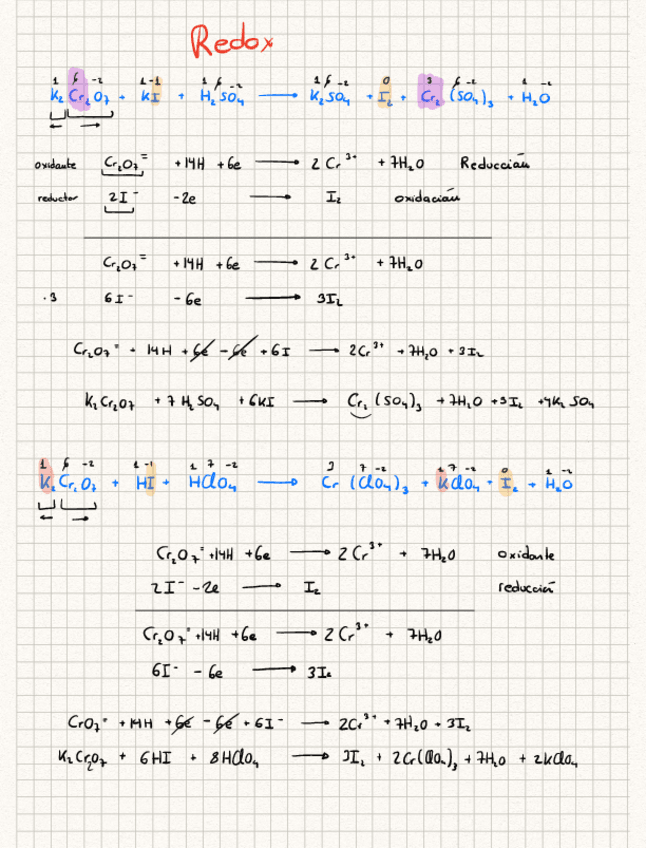 Redox
1 6 -2 1 -1 1 6 -2 1 6 -2 0 3 6 -2 1 -2
K₂Cr₂O₇ + KI + H₂SO₄ → K₂SO₄ + I₂ + Cr₂(SO₄)₃ + H₂O
oxidante Cr₂O₇⁼ +14H +6e → 2Cr³⁺ +7H₂O Reducción
reductor 2I⁻ -2e → I₂ oxidación
Cr₂O₇⁼ +14H +6e → 2Cr³⁺ +7H₂O
·3 6I⁻ -6e → 3I₂
Cr₂O₇⁼ + 14H +6e -6e +6I → 2Cr³⁺ +7H₂O +3I₂
K₂Cr₂O₇ + 7H₂SO₄ +6KI → Cr₂(SO₄)₃ +7H₂O +3I₂ +4K₂SO₄
1 6 -2 1 -1 1 7 -2 3 7 -2 1 7 -2 0 1 -2
K₂Cr₂O₇ + HI + HClO₄ → Cr(ClO₄)₃ + KClO₄ + I₂ + H₂O
Cr₂O₇⁼ +14H +6e → 2Cr³⁺ + 7H₂O oxidante
2I⁻ -2e → I₂ reducción
Cr₂O₇⁼ +14H +6e → 2Cr³⁺ + 7H₂O
6I⁻ - 6e → 3I₂
CrO₇⁼ +14H +6e -6e +6I⁻ → 2Cr³⁺ +7H₂O +3I₂
K₂Cr₂O₇ + 6HI + 8HClO₄ → 3I₂ + 2Cr(ClO₄)₃ +7H₂O + 2KClO₄